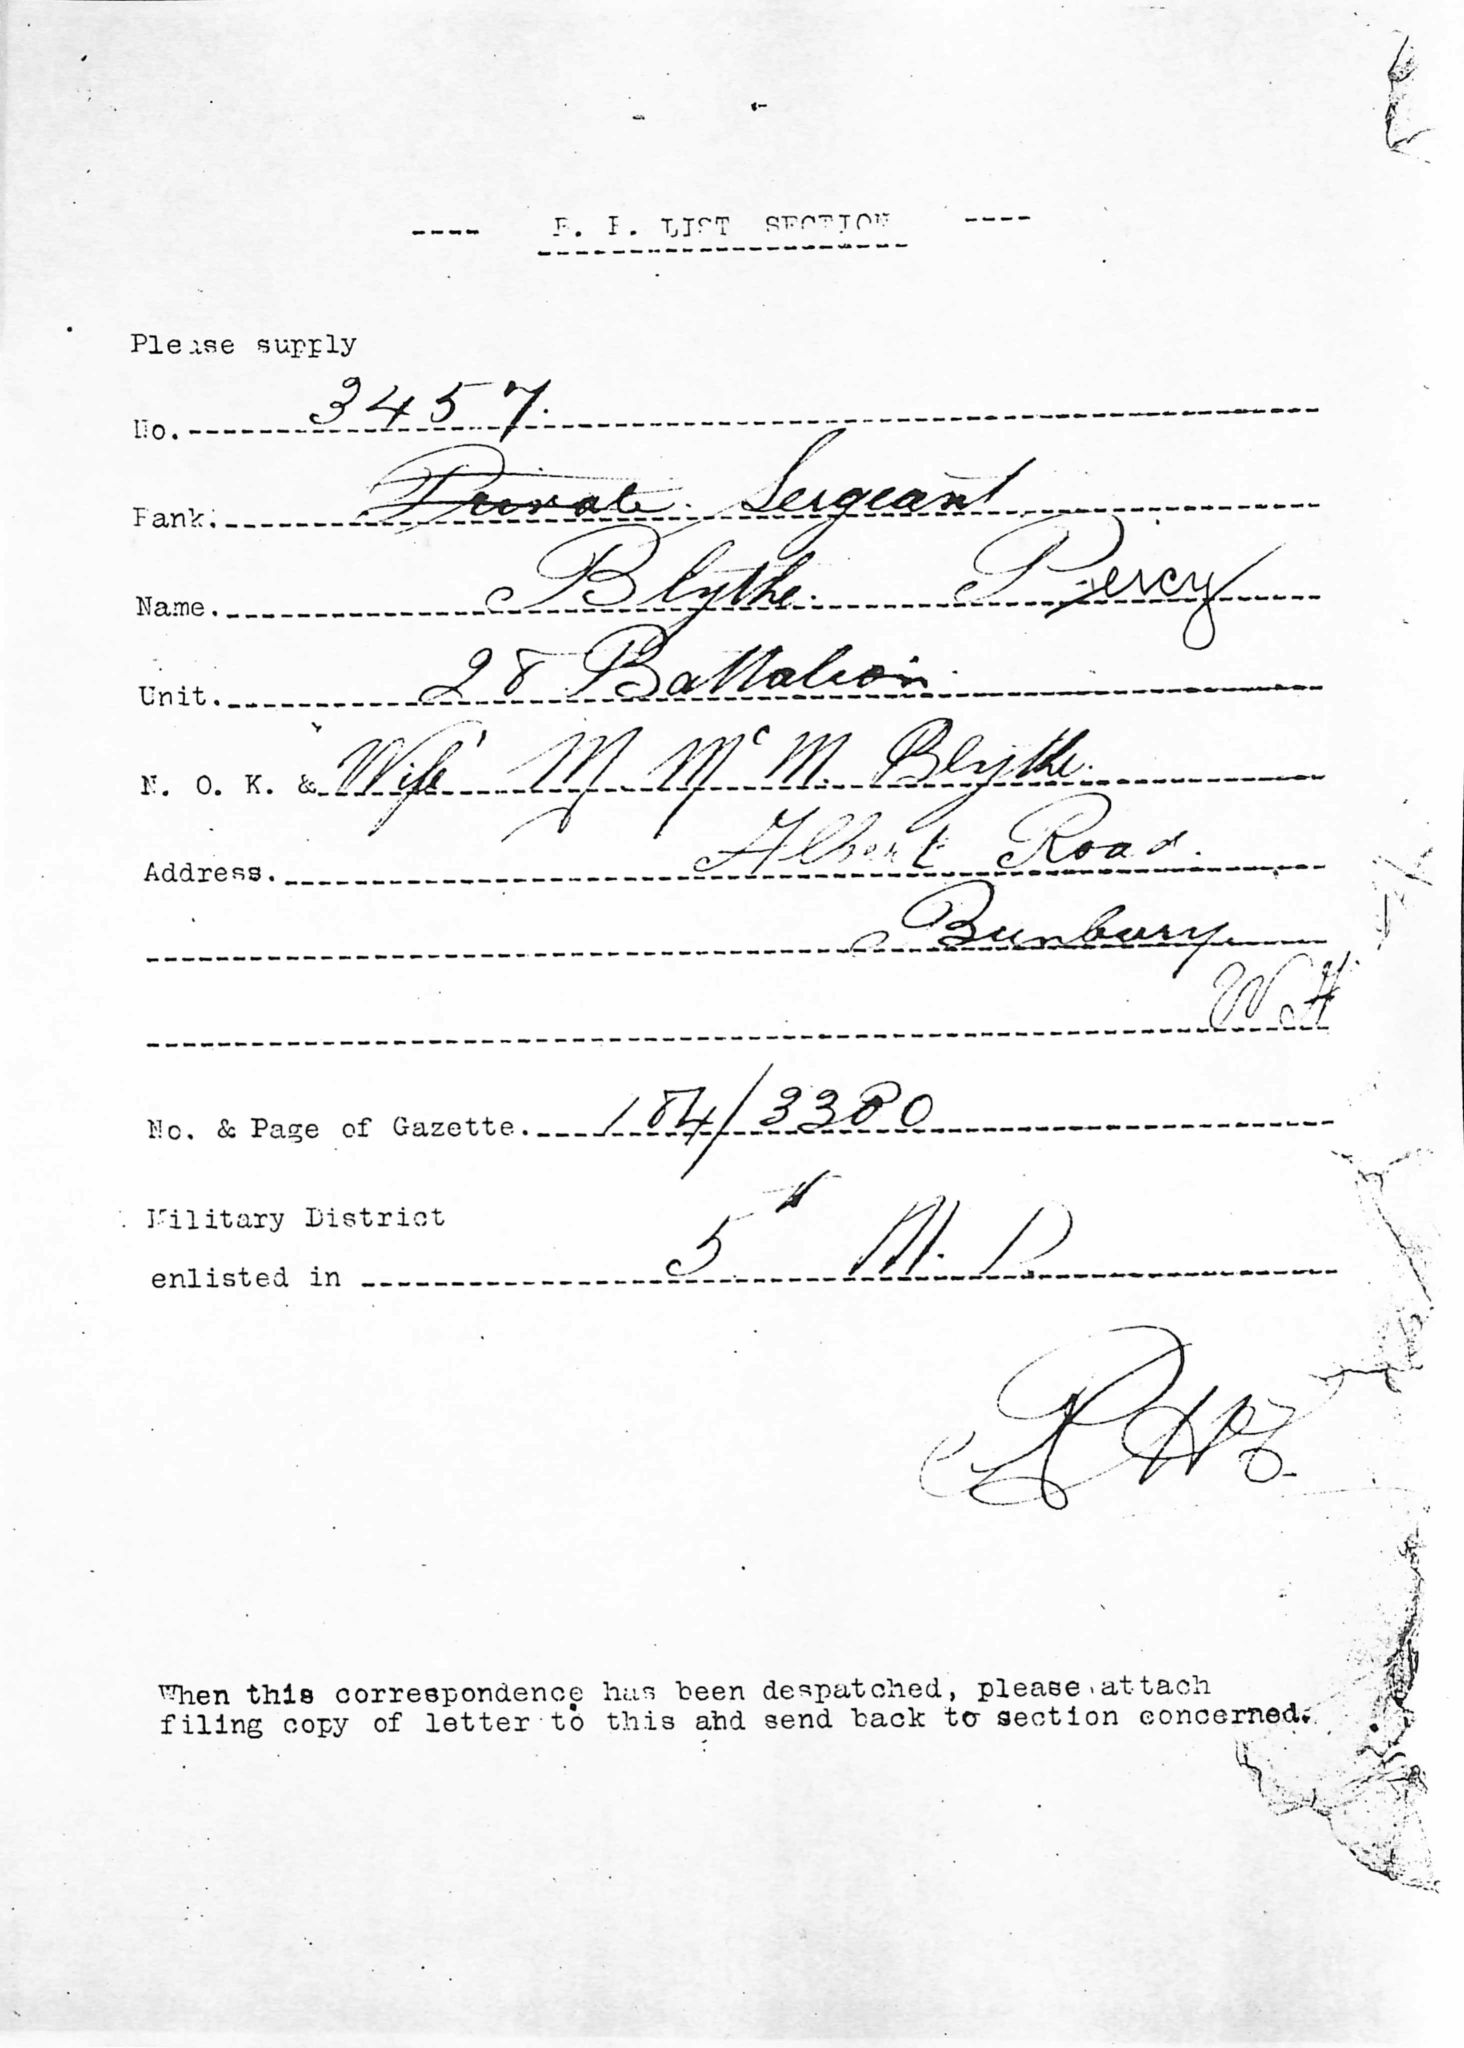 ---- B. R. LIST SECTION ----
Please supply
No. 3457.
Rank. Private. Sergeant
Name. Blythe. Percy
Unit. 28 Battalion.
N. O. K. & Wife M McM. Blythe.
Address. Albert Road.
Bunbury
W A
No. & Page of Gazette. 184/3380
Military District
enlisted in 5th M. D
When this correspondence has been despatched, please attach
filing copy of letter to this and send back to section concerned.